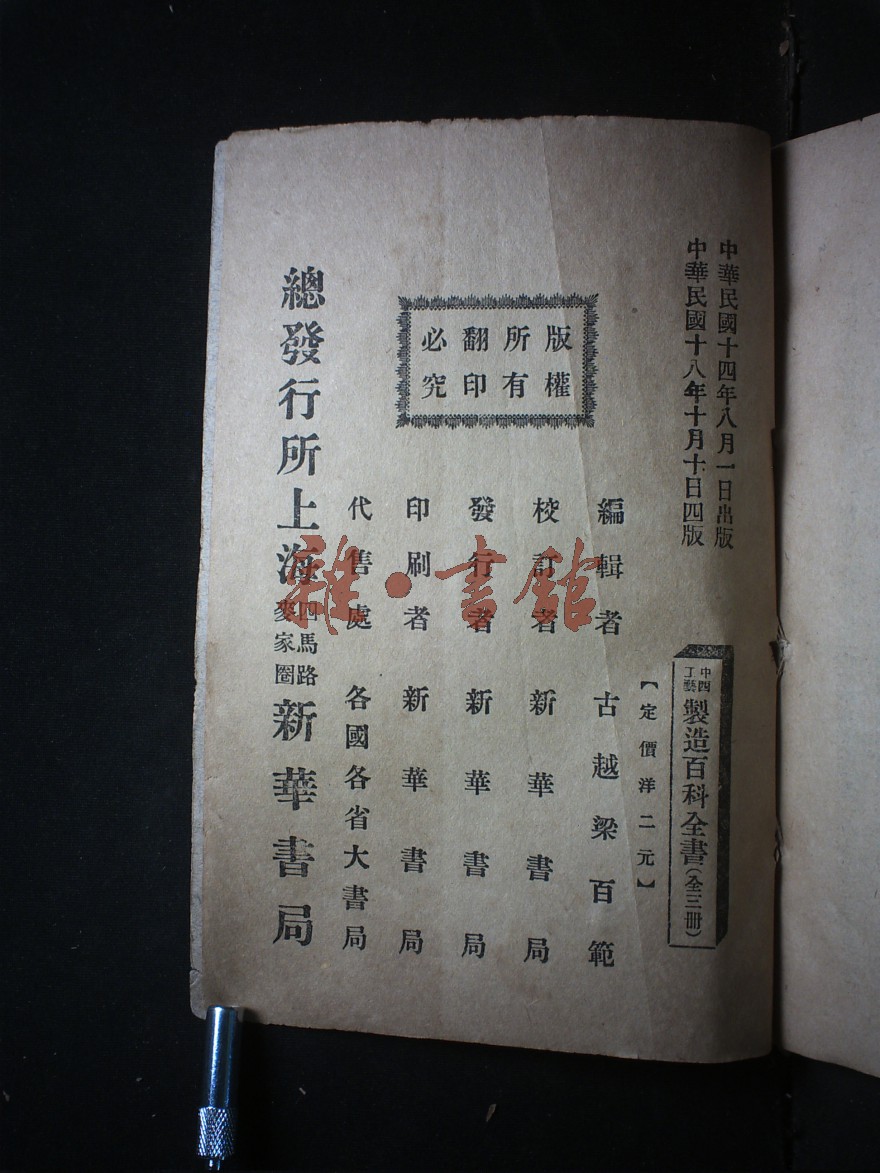 中華民國十四年八月一日出版
中華民國十八年十月十日四版
中西
工藝
製造百科全書(全三冊)
【定價洋二元】
編輯者 古越梁百範
校訂者 新華書局
發行者 新華書局
印刷者 新華書局
代售處 各國各省大書局
版權
所有
翻印
必究
總發行所上海
四馬路
麥家圈
新華書局
雜·書館